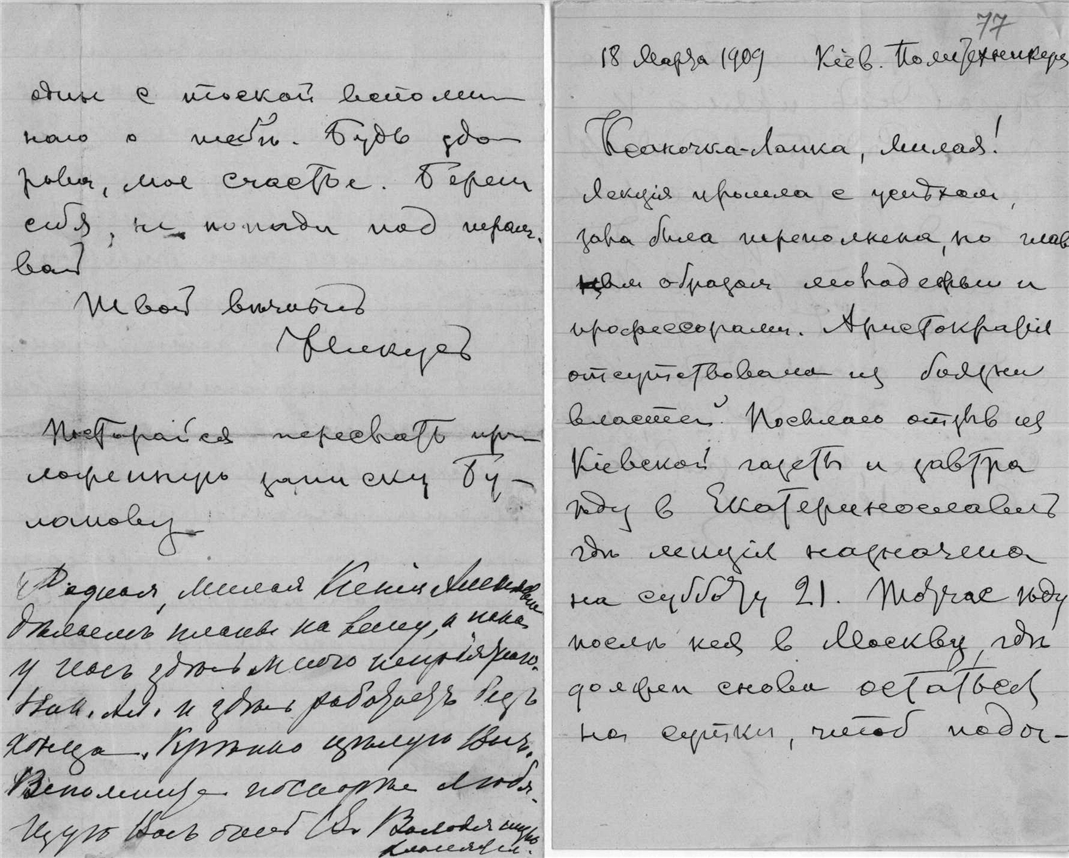 один с тоской вспоми-
наю о тебѣ. Будь здо
рова, мое счастье. Береги
себя, не попади под трам-
вай
Твой вѣчный
Постарайся переслать при-
ложенную записку Бу-
ланову
Родная, милая Ксенія Алексѣевна
дѣлаемъ планы на весну, а пока
у насъ здѣсь много
и здѣсь работаетъ безъ
конца. Крѣпко цѣлую Васъ.
любя-
щую Васъ
77
18 Марта 1909 Кіев. Политехникум
Ксаночка-Лапка, милая!
Лекція прошла с успѣхом,
зала была переполнена, но глав
ным образом молодежью и
профессорами. Аристократія
отсутствовала из боязни
властей. Посылаю отзыв из
Кіевской газеты и завтра
ѣду в Екатеринославль
гдѣ лекція назначена
на субботу 21. Тотчас ѣду
послѣ нея в Москву, гдѣ
должен снова остаться
на сутки, чтоб